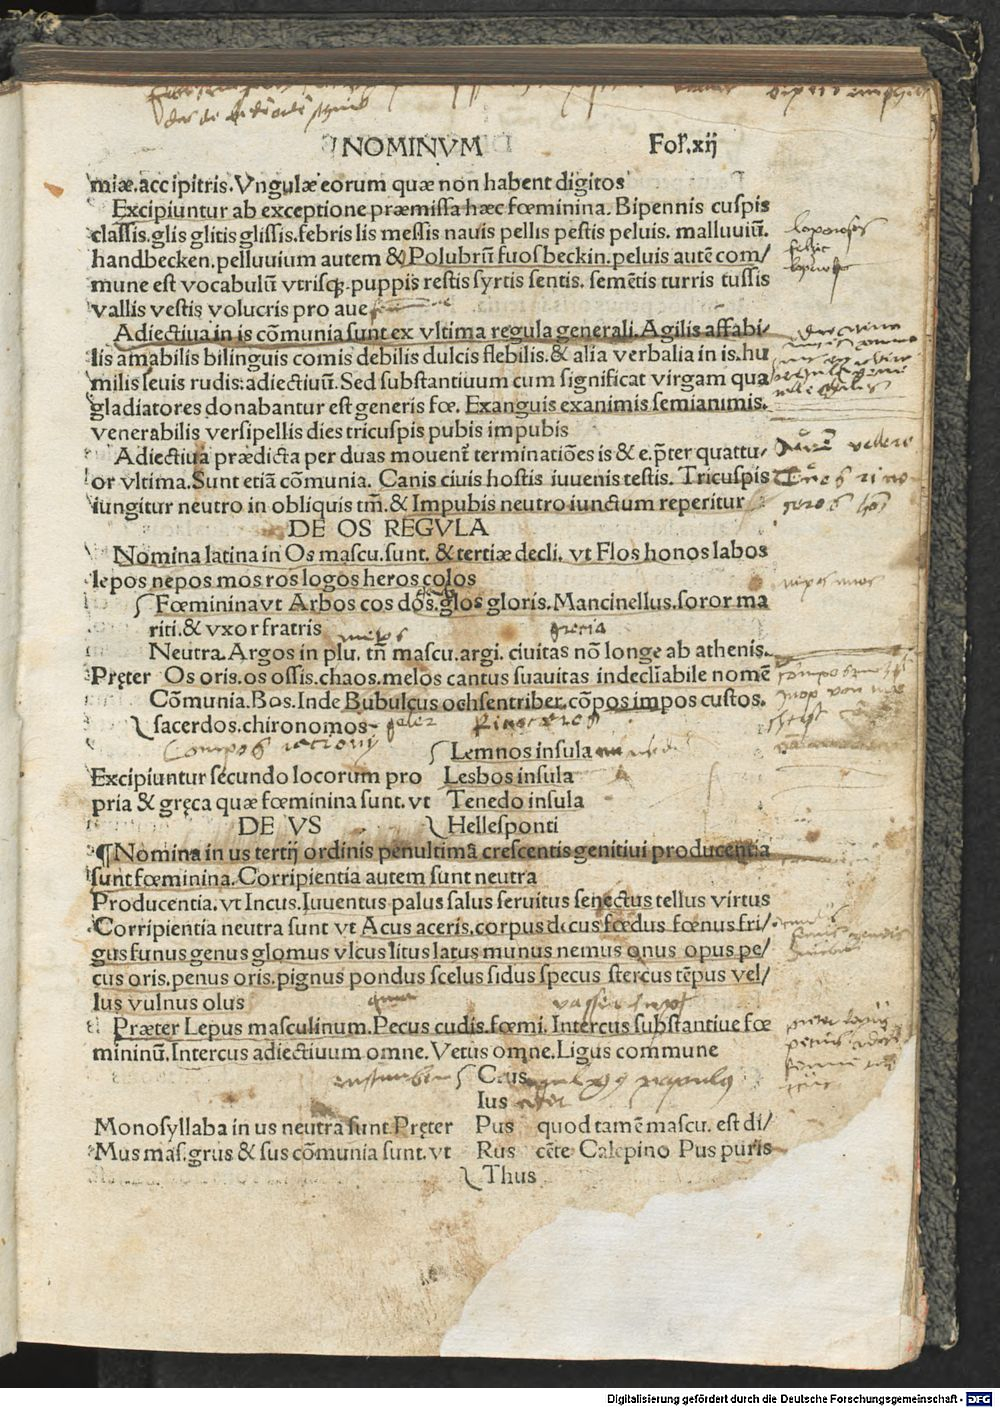 NOMINVM Fol'.xij
miæ.accipitris.Vngulæ eorum quæ non habent digitos
Excipiuntur ab exceptione præmissa hæc fœminina.Bipennis cuspis
classis.glis glitis glissis.febris lis messis nauis pellis pestis peluis. malluuiũ.
handbecken.pelluuium autem & Polubrũ fuosbeckin.peluis autẽ com/
mune est vocabulũ vtrisqꝫ.puppis restis syrtis sentis. semẽtis turris tussis
vallis vestis volucris pro aue
Adiectiua in is cõmunia sunt ex vltima regula generali.Agilis affabi-
lis amabilis bilinguis comis debilis dulcis flebilis.& alia verbalia in is.hu
milis leuis rudis:adiectiuũ.Sed substantiuum cum significat virgam qua
gladiatores donabantur est generis fœ. Exanguis exanimis semianimis.
venerabilis versipellis dies tricuspis pubis impubis
Adiectiua prædicta per duas mouent̃ terminatiões is & e.p̃ter quattu-
or vltima.Sunt etiã cõmunia. Canis ciuis hostis iuuenis testis. Tricuspis
iungitur neutro in obliquis tm̃.& Impubis neutro iunctum reperitur
DE OS REGVLA
Nomina latina in Os mascu.sunt. & tertiæ decli. vt Flos honos labos
lepos nepos mos ros logos heros colos
Fœminina vt Arbos cos dos.glos gloris.Mancinellus.soror ma
riti.& vxor fratris
Neutra.Argos in plu. tñ mascu.argi. ciuitas nõ longe ab athenis.
Pręter Os oris.os ossis.chaos.melos cantus suauitas indecliabile nomẽ
Cõmunia.Bos.Inde Bubulcus ochsentriber.cõpos impos custos.
sacerdos.chironomos
Lemnos insula
Excipiuntur secundo locorum pro Lesbos insula
pria & gręca quæ fœminina sunt.vt Tenedo insula
DE VS Hellesponti
¶Nomina in us tertij ordinis penultimã crescentis genitiui producentia
sunt fœminina.Corripientia autem sunt neutra
Producentia.vt Incus.Iuuentus palus salus seruitus senectus tellus virtus
Corripientia neutra sunt vt Acus aceris.corpus decus fœdus fœnus fri/
gus funus genus glomus vlcus litus latus munus nemus onus opus pe/
cus oris.penus oris.pignus pondus scelus sidus specus stercus tẽpus vel/
lus vulnus olus
Præter Lepus masculinum.Pecus cudis.fœmi. Intercus substantiue fœ
mininũ.Intercus adiectiuum omne.Vetus omne.Ligus commune
Crus
Ius
Monosyllaba in us neutra sunt Pręter Pus quod tamẽ mascu. est di/
Mus mas.grus & sus cõmunia sunt.vt Rus cẽte Calepino Pus puris
Thus
Digitalisierung gefördert durch die Deutsche Forschungsgemeinschaft - DFG